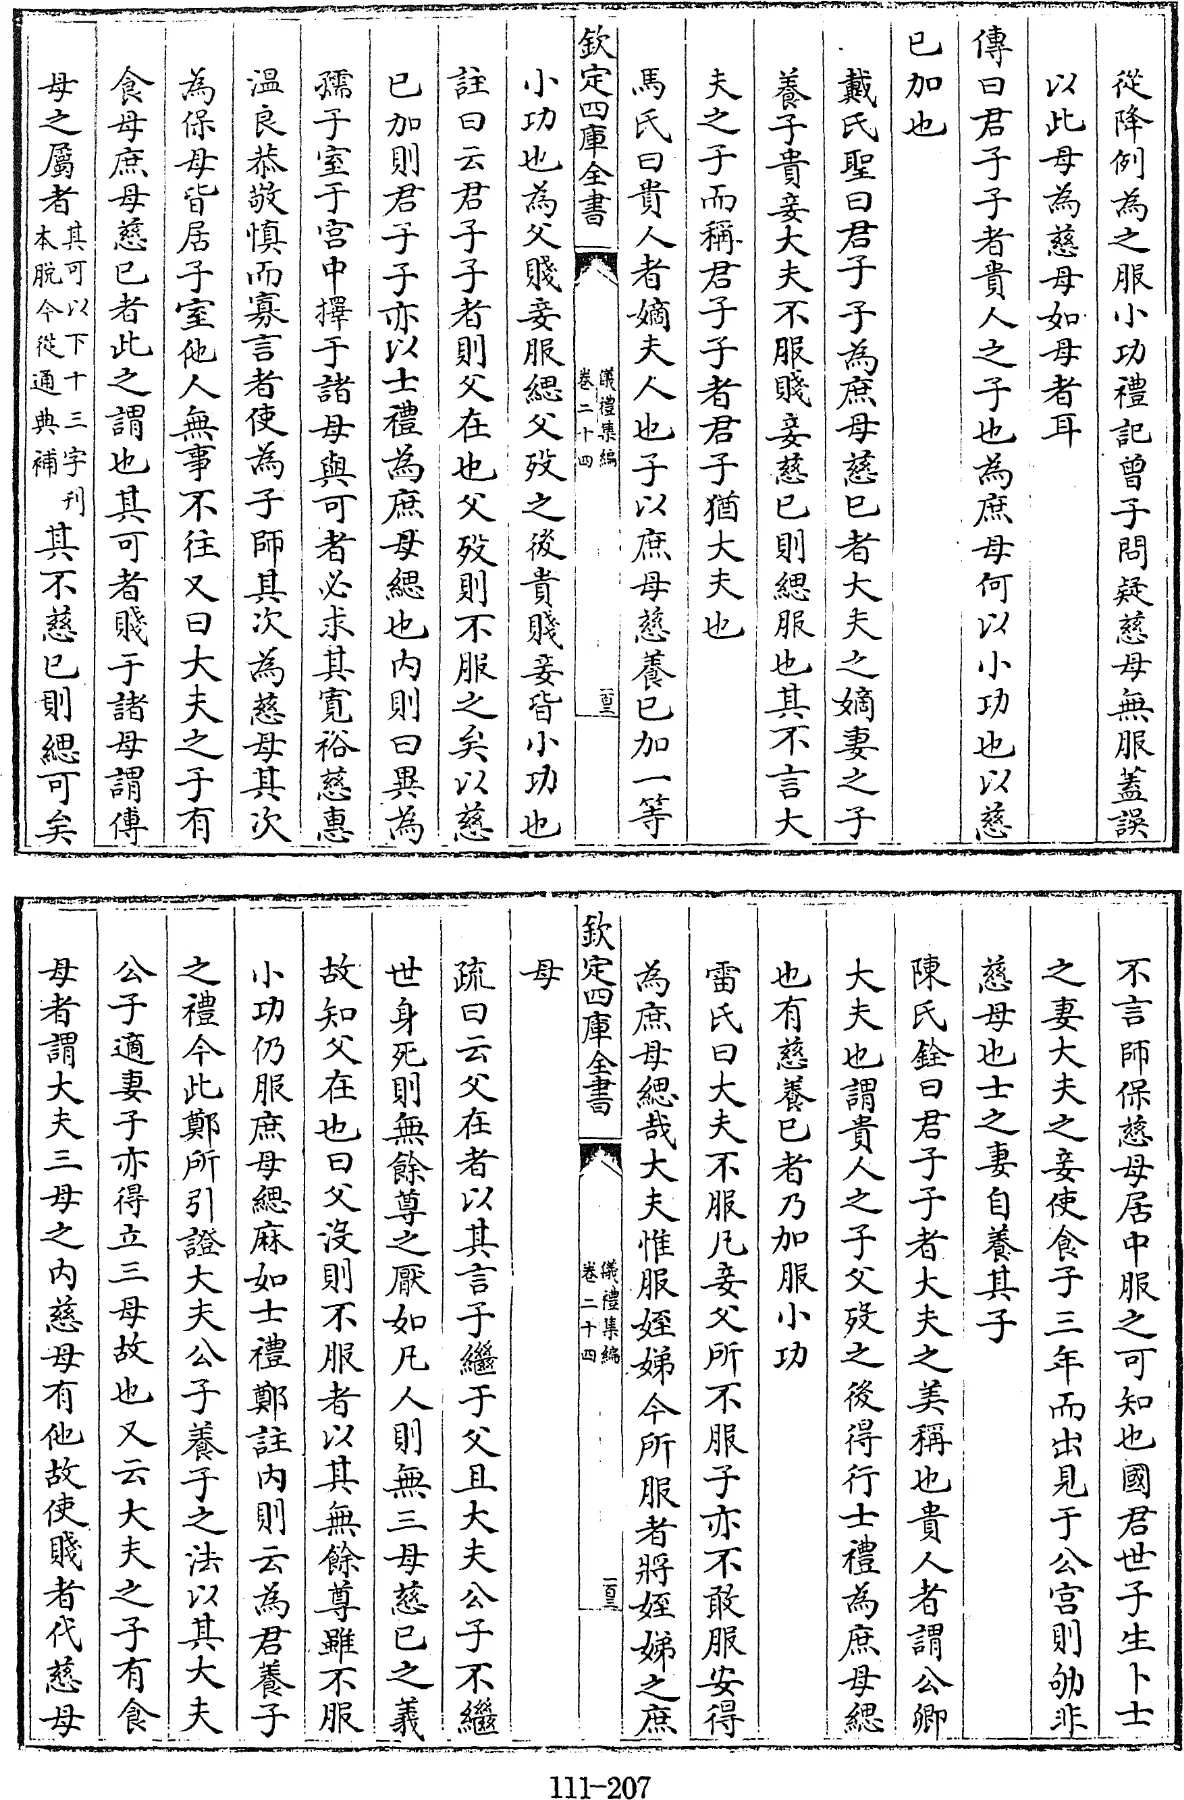 從降例為之服小功禮記曾子問疑慈母無服蓋誤
以此母為慈母如母者耳
傳曰君子子者貴人之子也為庶母何以小功也以慈
已加也
戴氏聖曰君子子為庶母慈已者大夫之嫡妻之子
養于貴妾大夫不服賤妾慈已則緦服也其不言大
夫之子而稱君子子者君子猶大夫也
馬氏曰貴人者嫡夫人也子以庶母慈養已加一等
欽定四庫全書
儀禮集編
卷二十四
小功也為父賤妾服緦父歿之後貴賤妾皆小功也
註曰云君子子者則父在也父歿則不服之矣以慈
已加則君子子亦以士禮為庶母緦也内則曰異為
孺子室于宫中擇于諸母與可者必求其寛裕慈惠
温良恭敬慎而寡言者使為子師其次為慈母其次
為保母皆居子室他人無事不往又曰大夫之子有
食母庶母慈已者此之謂也其可者賤于諸母謂傅
母之屬者其可以下十三字刋本脱今從通典補其不慈已則緦可矣
不言師保慈母居中服之可知也國君世子生卜士
之妻大夫之妾使食子三年而出見于公宫則劬非
慈母也士之妻自養其子
陳氏銓曰君子子者大夫之美稱也貴人者謂公卿
大夫也謂貴人之子父歿之後得行士禮為庶母緦
也有慈養已者乃加服小功
雷氏曰大夫不服凡妾父所不服子亦不敢服安得
為庶母緦哉大夫惟服姪娣今所服者將姪娣之庶
欽定四庫全書
儀禮集編
卷二十四
母
疏曰云父在者以其言子繼于父且大夫公子不繼
世身死則無餘尊之厭如凡人則無三母慈已之義
故知父在也曰父沒則不服者以其無餘尊雖不服
小功仍服庶母緦麻如士禮鄭註内則云為君養子
之禮今此鄭所引證大夫公子養子之法以其大夫
公子適妻子亦得立三母故也又云大夫之子有食
母者謂大夫三母之内慈母有他故使賤者代慈母
111-207